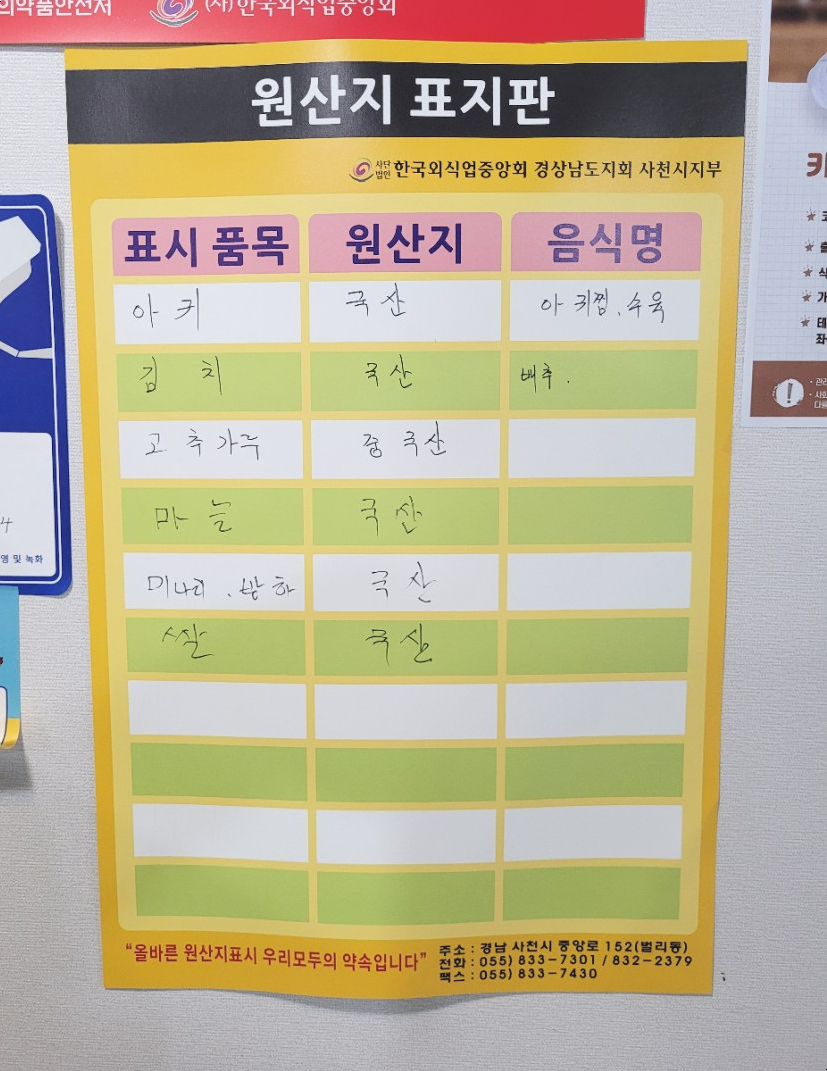 의약품안전처 (사)한국외식업중앙회
원산지 표지판
사단법인 한국외식업중앙회 경상남도지회 사천시지부
표시 품목 원산지 음식명
아귀 국산 아귀찜, 수육
김치 국산 배추.
고추가루 중국산
마늘 국산
미나리, 방아 국산
쌀 국산
"올바른 원산지표시 우리모두의 약속입니다"
주소 : 경남 사천시 중앙로 152(벌리동)
전화 : 055) 833-7301 / 832-2379
팩스 : 055) 833-7430
영 및 녹화